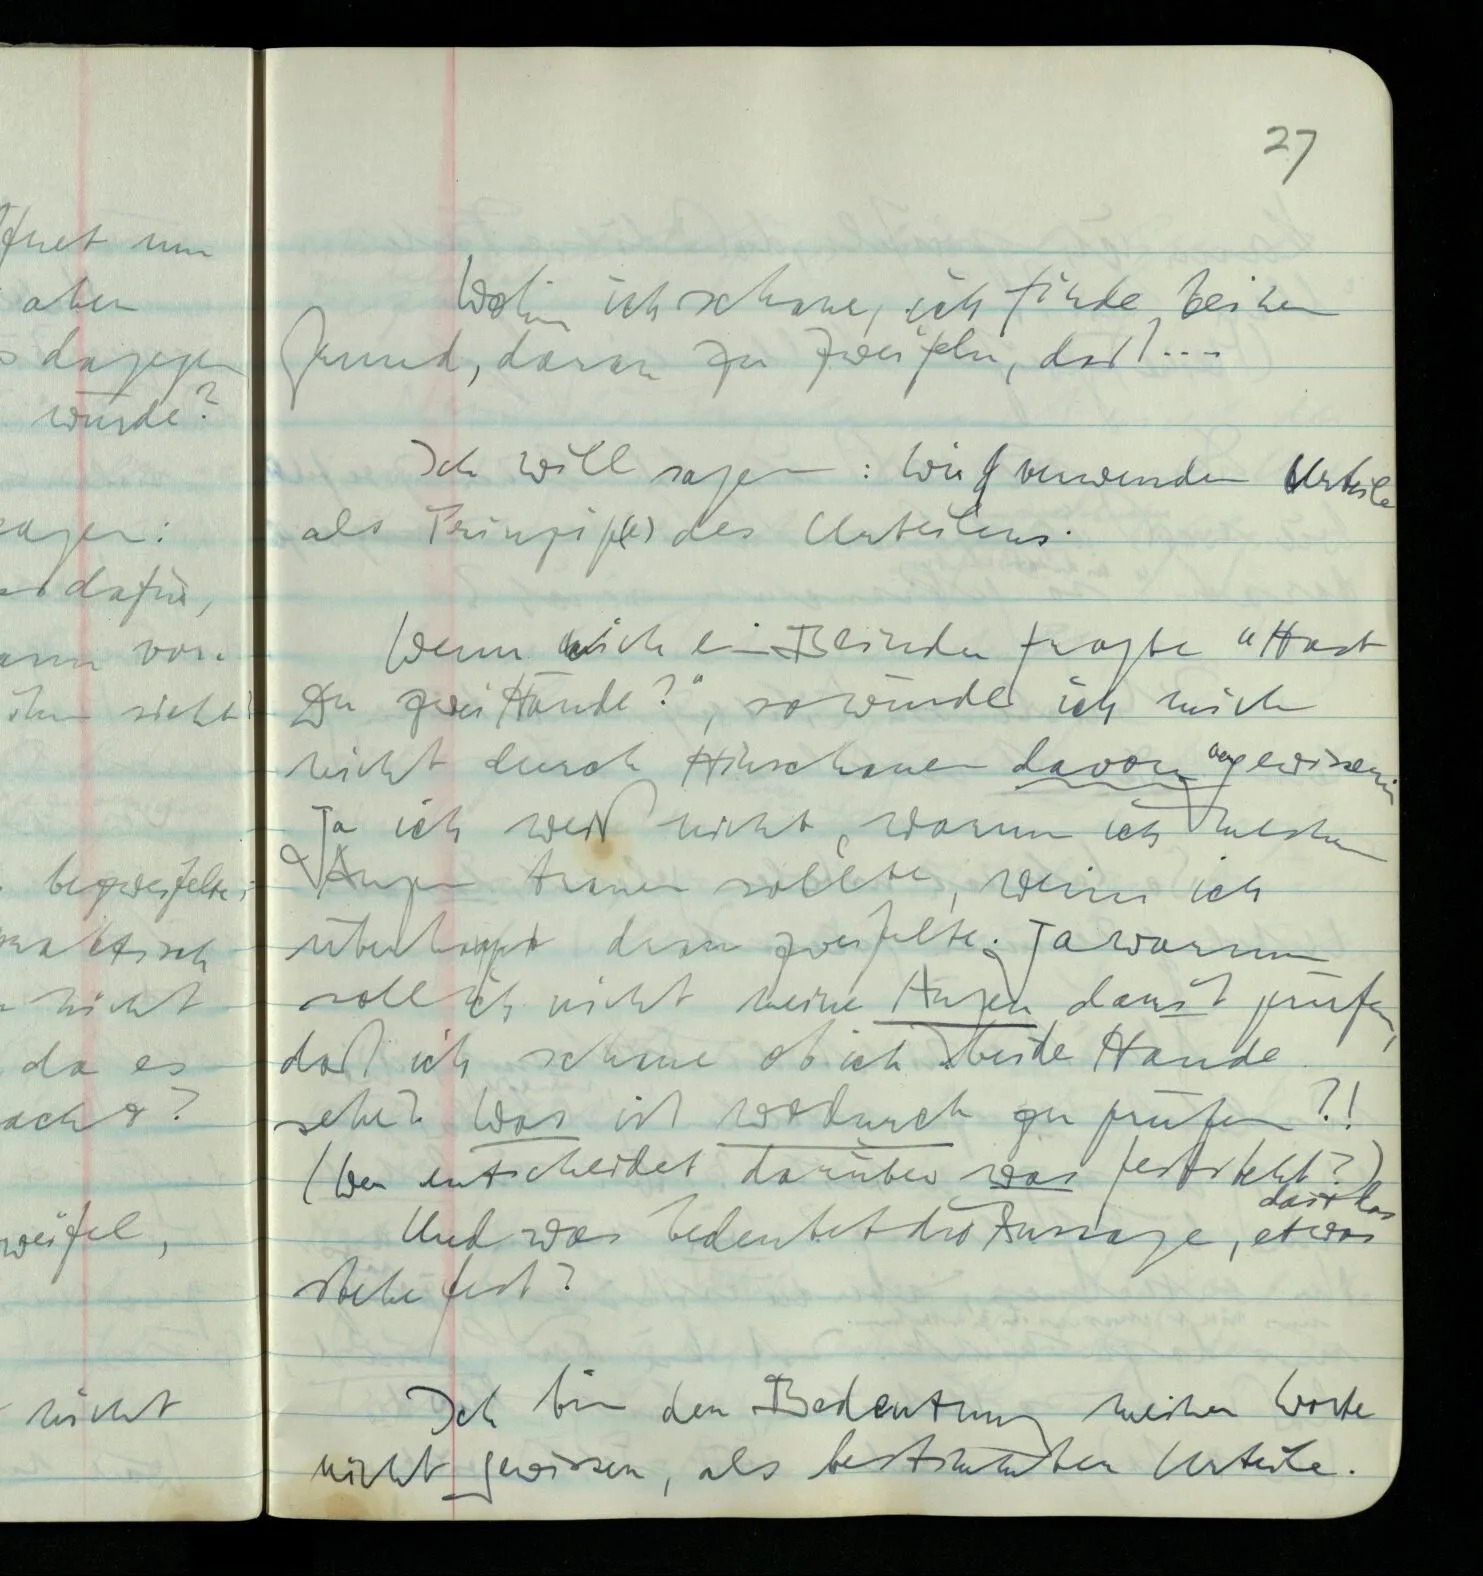 fnet um
aber
dagegen
würde?
sagen:
dafür,
kann vor-
ihm nicht
bezweifelte;
praktisch
nicht
da es
macht?
Zweifel,
nicht
27
Wohin ich schaue, ich finde keinen
Grund, daran zu zweifeln, daß ...
Ich will sagen: Wir verwenden Urteile
als Prinzip(e) des Urteilens.
Wenn mich ein Blinder fragte "Hast
Du zwei Hände?", so würde ich mich
nicht durch Hinschauen davon vergewissern.
Ja ich weiß nicht, warum ich meinen
Augen trauen sollte, wenn ich
überhaupt dran zweifelte. Ja warum
soll ich nicht meine Augen damit prüfen,
daß ich schaue ob ich beide Hände
sehe? Was ist wodurch zu prüfen?!
(Wer entscheidet darüber was feststeht?)
Und was bedeutet die Aussage, daß das
etwas
stehe fest?
Ich bin der Bedeutung meiner Worte
nicht gewisser, als bestimmter Urteile.